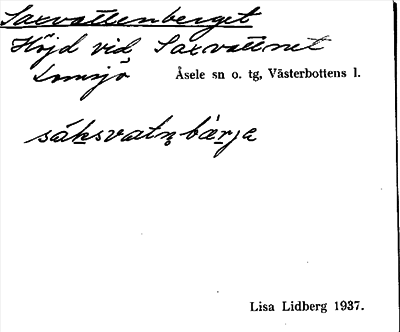 Saxvattenberget
Höjd vid Saxvattnet
Lomsjö Åsele sn o. tg, Västerbottens l.
sáksvatn̥bær̯ja
Lisa Lidberg 1937.